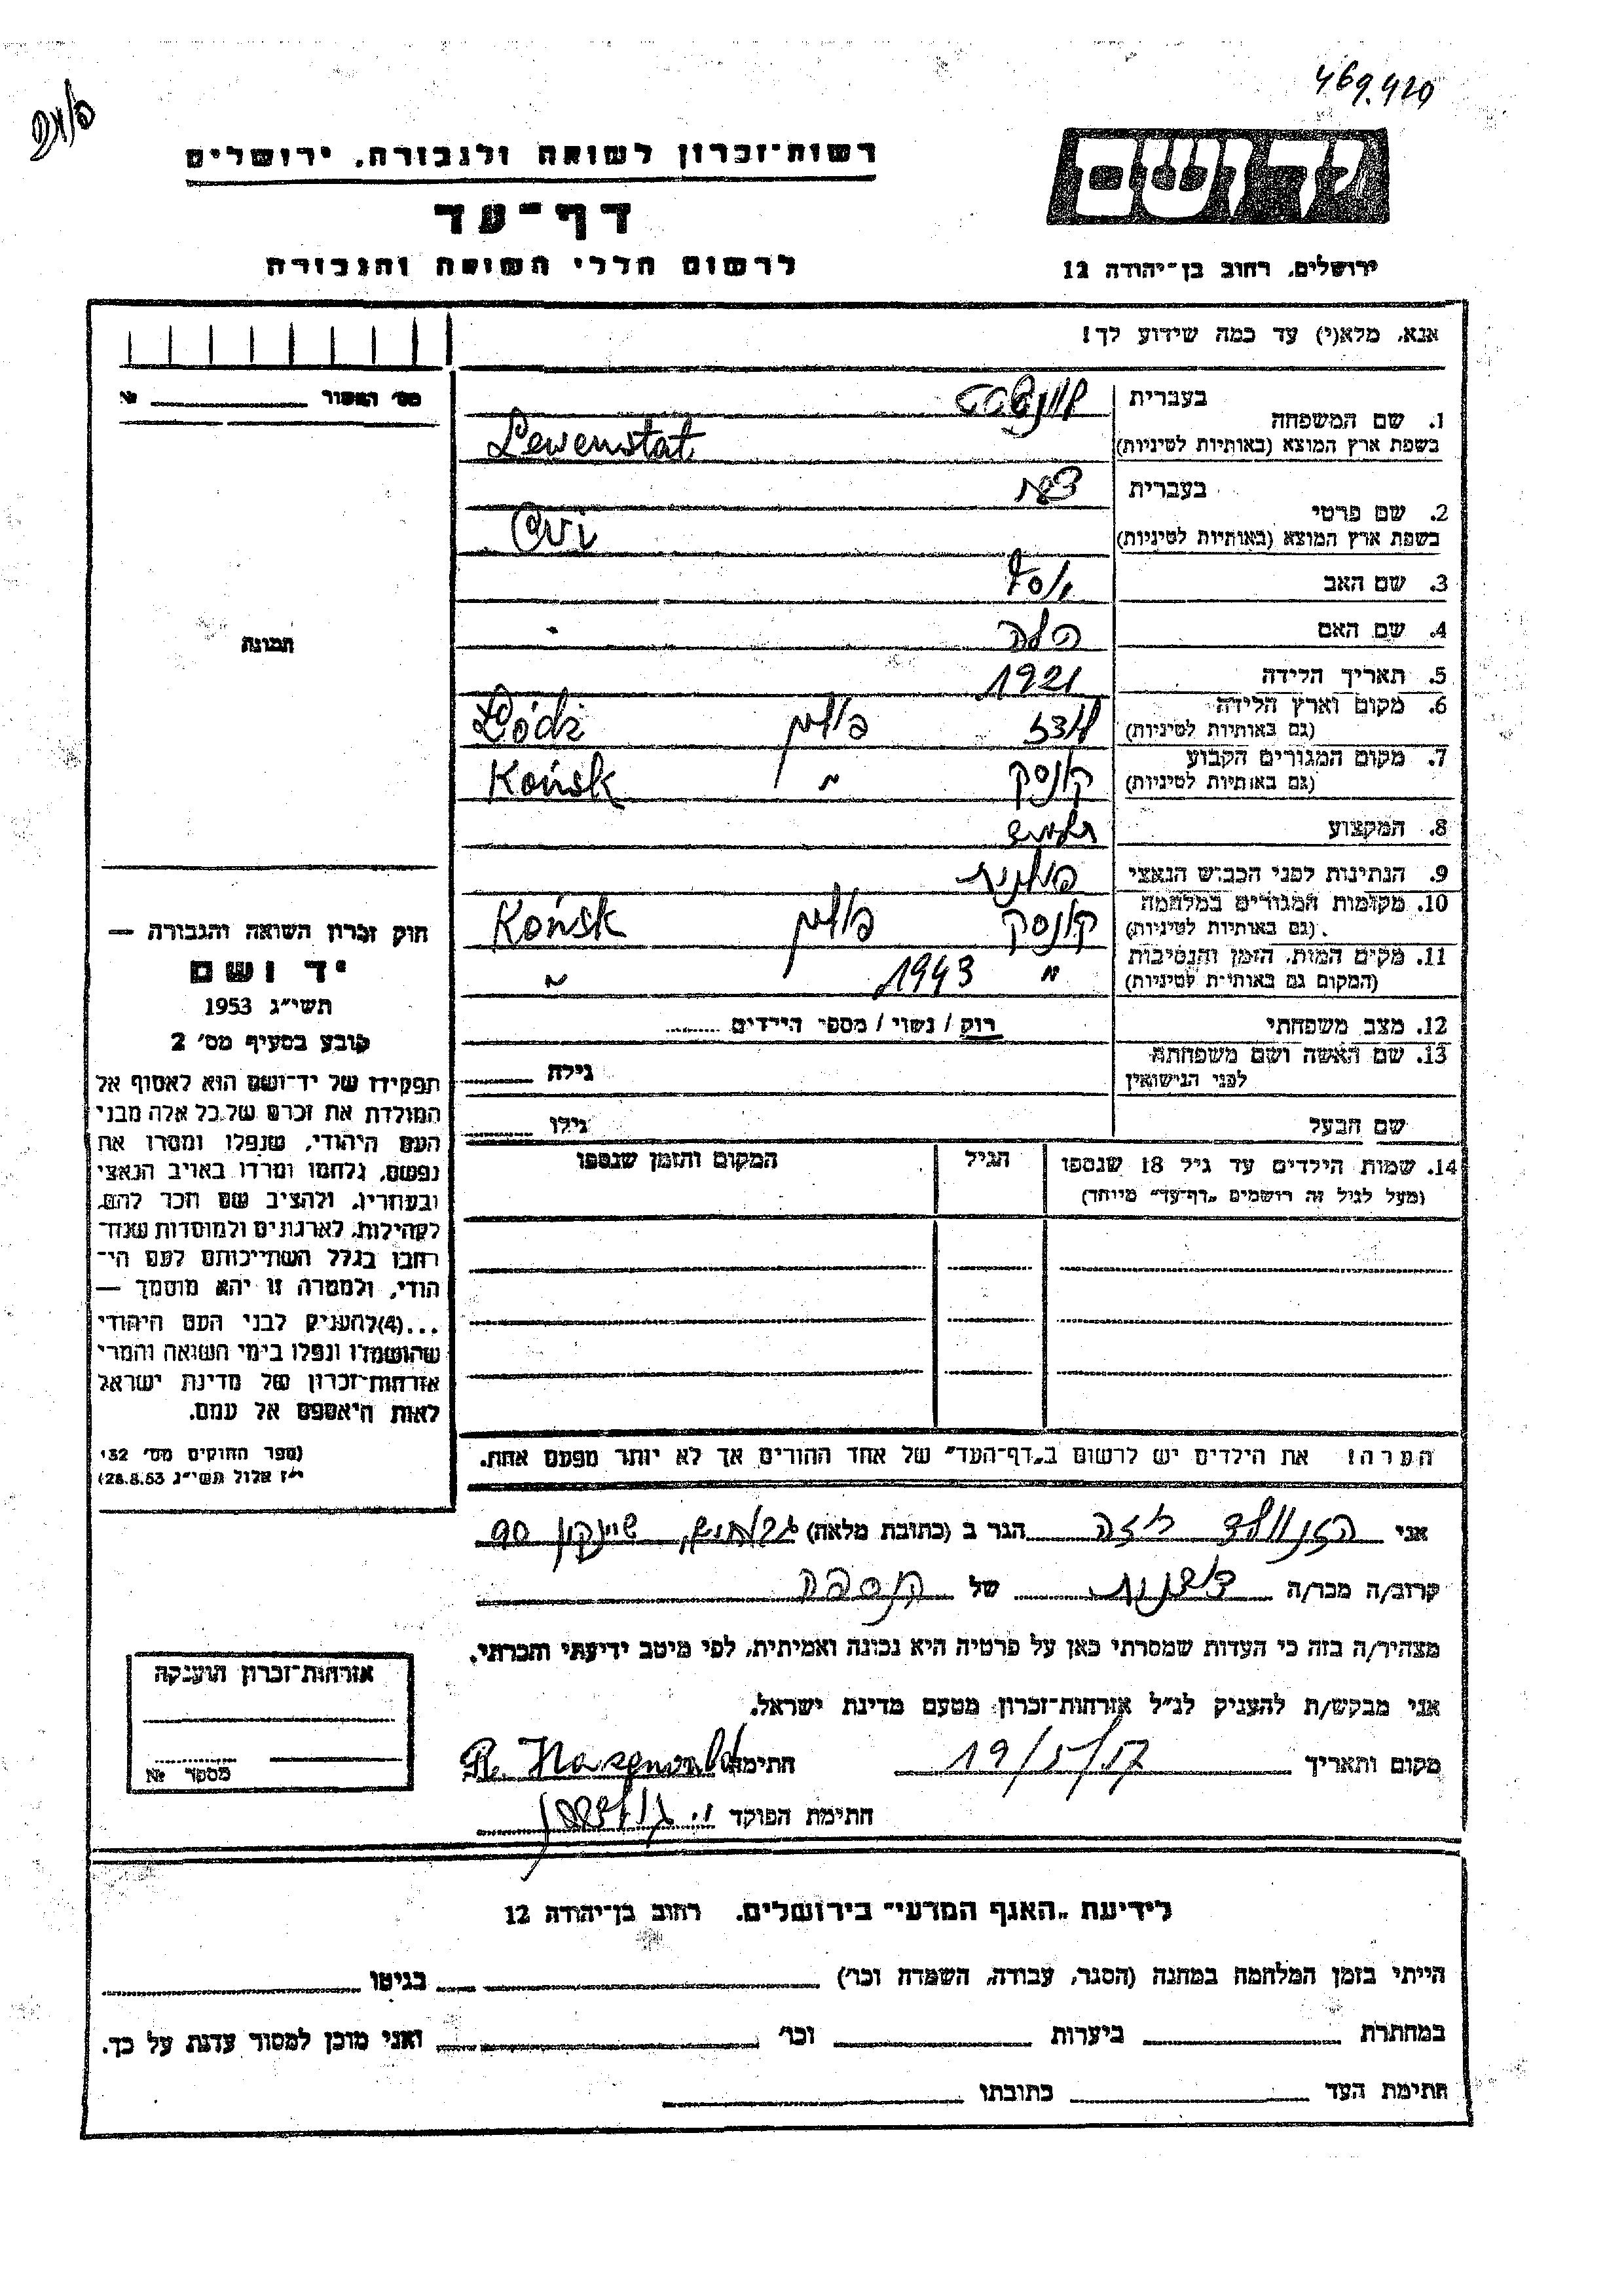 469.420
פולין
רשות־זכרון לשואה ולגבורה, ירושלים
יד ושם
דף־עד
לרשום חללי השואה והגבורה
ירושלים, רחוב בן־יהודה 12
אנא, מלא(י) עד כמה שידוע לך!
מס' האשור № ______
1. שם המשפחה
בעברית
בשפת ארץ המוצא (באותיות לטיניות) Lewenstat
2. שם פרטי
בעברית
בשפת ארץ המוצא (באותיות לטיניות) Cwi
3. שם האב יוסף
4. שם האם הלה
5. תאריך הלידה 1921
6. מקום וארץ הלידה (גם באותיות לטיניות) לודז פולין Łódź
7. מקום המגורים הקבוע (גם באותיות לטיניות) קונסק " Końsk
8. המקצוע
9. הנתינות לפני הכבוש הנאצי פולנית
10. מקומות המגורים במלחמה (גם באותיות לטיניות) קונסק פולין Końsk
11. מקום המות, הזמן והנסיבות (המקום גם באותיות לטיניות) " 1943 "
12. מצב משפחתי רווק / נשוי / מספר הילדים ........
13. שם האשה ושם משפחתה לפני הנישואין גילה
שם הבעל גילו
14. שמות הילדים עד גיל 18 שנספו הגיל המקום והזמן שנספו
(מעל לגיל זה רושמים „דף־עד" מיוחד)
הערה! את הילדים יש לרשום ב„דף־העד" של אחד ההורים אך לא יותר מפעם אחת.
תמונה
חוק זכרון השואה והגבורה —
יד ושם
תשי"ג 1953
קובע בסעיף מס' 2
תפקידו של יד־ושם הוא לאסוף אל
המולדת את זכרם של כל אלה מבני
העם היהודי, שנפלו ומסרו את
נפשם, נלחמו ומרדו באויב הנאצי
ובעוזריו, ולהציב שם וזכר להם,
לקהילות, לארגונים ולמוסדות שנח־
רבו בגלל השתייכותם לעם הי־
הודי, ולמטרה זו יהא מוסמך —
...(4)להעניק לבני העם היהודי
שהושמדו ונפלו בימי השואה והמרי
אזרחות־זכרון של מדינת ישראל
לאות היאספם אל עמם.
(ספר החוקים מס' 132
י"ז אלול תשי"ג 28.8.53)
אני הזנולד רוזה הגר ב (כתובת מלאה) שיינקין 90
קרוב/ה מכר/ה של
מצהיר/ה בזה כי העדות שמסרתי כאן על פרטיה היא נכונה ואמיתית, לפי מיטב ידיעתי והכרתי.
אני מבקש/ת להעניק לנ"ל אזרחות־זכרון מטעם מדינת ישראל.
מקום ותאריך 19/5/57 חתימה R. Hazenwald
חתימת הפוקד
אזרחות־זכרון הוענקה
מספר №
לידיעת „האגף המדעי" בירושלים, רחוב בן־יהודה 12
הייתי בזמן המלחמה במחנה (הסגר, עבודה, השמדה וכו') ______ בגיטו ______
במחתרת ______ ביערות ______ וכו' ______ ואני מוכן למסור עדות על כך.
חתימת העד ______ כתובתו ______